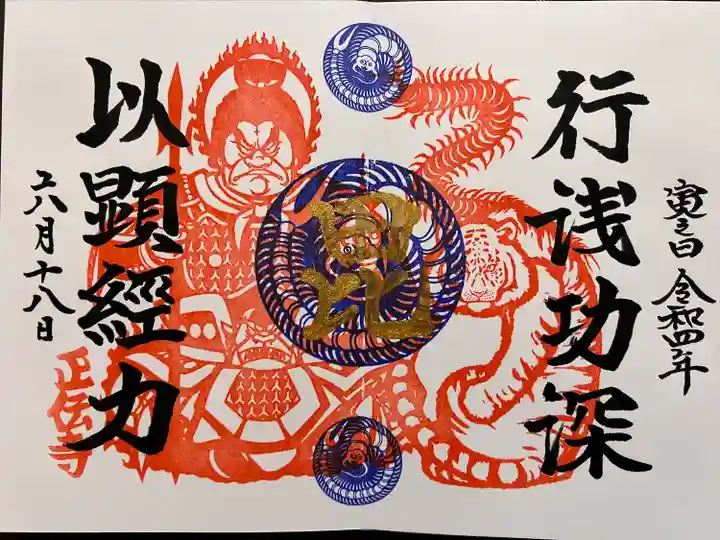 寅之日 令和四年
行浅功深
以顯經力
八月十八日
正伝寺